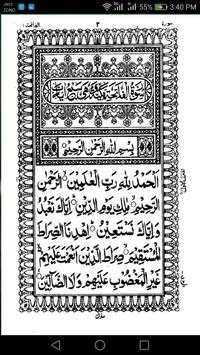 JAZZ
ZONG
55% 3:40 PM
سورة ٣ الفاتحة ١
بِسْمِ اللهِ الرَّحْمٰنِ الرَّحِيْمِ
اَلْحَمْدُ لِلّٰهِ رَبِّ الْعٰلَمِيْنَ الرَّحْمٰنِ
الرَّحِيْمِ مٰلِكِ يَوْمِ الدِّيْنِ اِيَّاكَ نَعْبُدُ
وَاِيَّاكَ نَسْتَعِيْنُ اِهْدِنَا الصِّرَاطَ
الْمُسْتَقِيْمَ صِرَاطَ الَّذِيْنَ اَنْعَمْتَ عَلَيْهِمْ
غَيْرِ الْمَغْضُوْبِ عَلَيْهِمْ وَلَا الضَّآلِّيْنَ